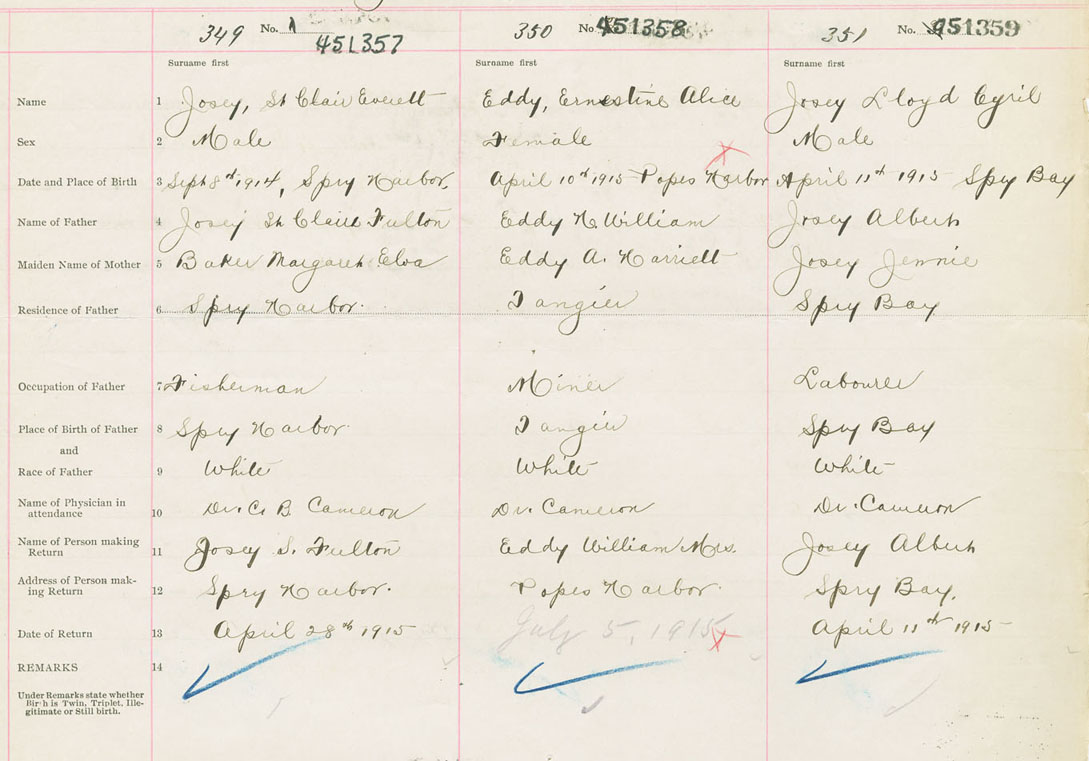 349 No. 451357 350 No. 451358 351 No. 451359
Surname first Surname first Surname first
Name 1 Josey, St Clair Everett Eddy, Ernestine Alice Josey Lloyd Cyril
Sex 2 Male Female Male
Date and Place of Birth 3 Sept 8th 1914, Spry Harbor. April 10th 1915 Popes Harbor April 11th 1915 Spry Bay
Name of Father 4 Josey St Clair Fulton Eddy H. William Josey Albert
Maiden Name of Mother 5 Baker Margaret Elva Eddy A. Harriett Josey Jennie
Residence of Father 6 Spry Harbor. Tangier Spry Bay
Occupation of Father 7 Fisherman Miner Labourer
Place of Birth of Father 8 Spry Harbor. Tangier Spry Bay
and
Race of Father 9 White White White
Name of Physician in
attendance 10 Dr. C. B. Cameron Dr. Cameron Dr. Cameron
Name of Person making
Return 11 Josey S. Fulton Eddy William Mrs. Josey Albert
Address of Person mak-
ing Return 12 Spry Harbor. Popes Harbor. Spry Bay.
Date of Return 13 April 28th 1915 July 5, 1915 X April 11th 1915
REMARKS 14
Under Remarks state whether
Birth is Twin, Triplet, Ille-
gitimate or Still birth.